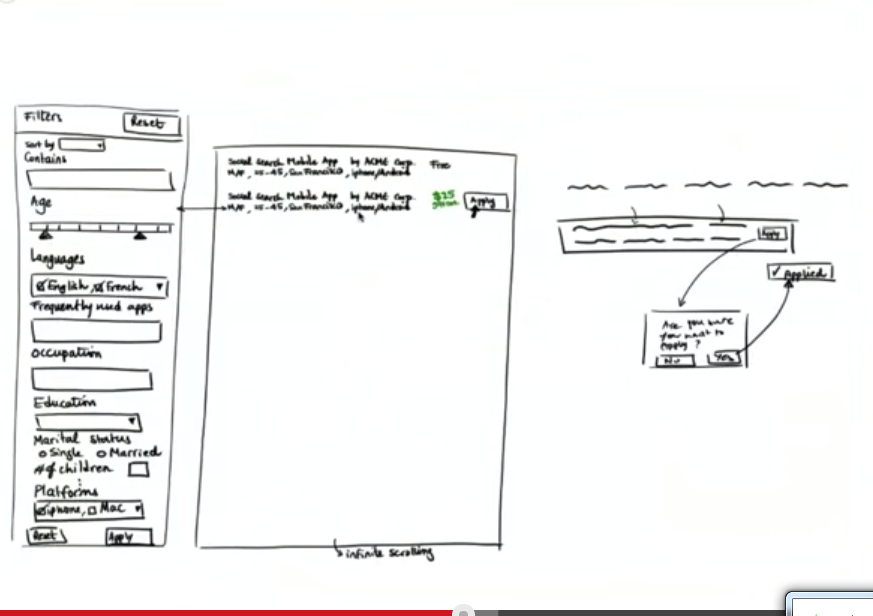 Filters
Reset
Sort by
Contains
Age
Languages
English, French
Frequently used apps
Occupation
Education
Marital Status
Single Married
# of children
Platforms
iphone, Mac
Reset Apply
Social Search Mobile App by ACME Corp. Free
M/F, 25-45, San Francisco, iphone/Android
Social Search Mobile App by ACME Corp. $25
M/F, 25-45, San Francisco, iphone/Android
Apply
infinite scrolling
Apply
✓ Applied
Are you sure
you want to
apply?
No Yes